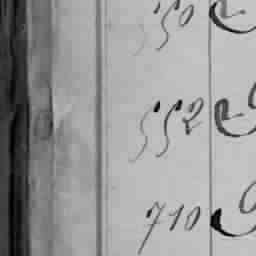 550
552
710